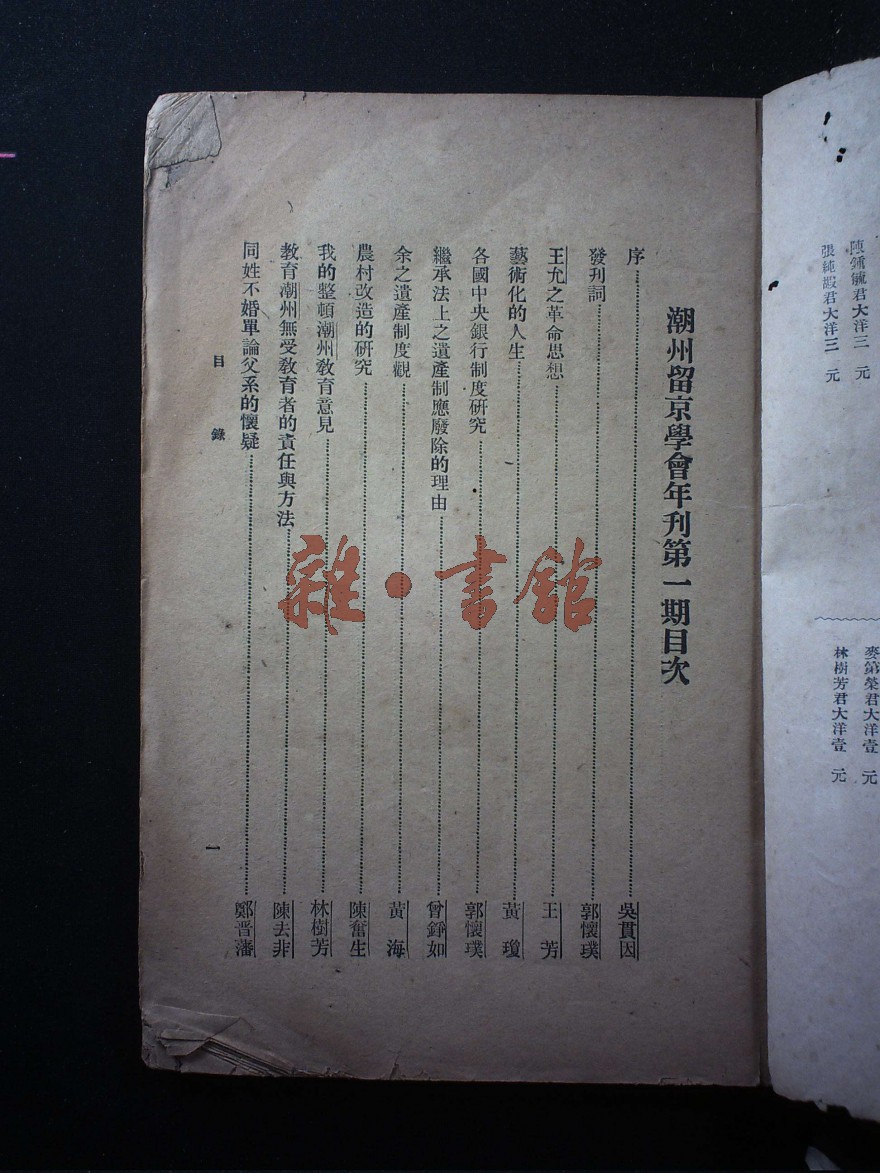 陳鍾毓君大洋三　元
張純嘏君大洋三　元
麥第榮君大洋壹　元
林樹芳君大洋壹　元
潮州留京學會年刊第一期目次
序……吳貫因
發刊詞……郭懷璞
王允之革命思想……王　芳
藝術化的人生……黃　瓊
各國中央銀行制度研究……郭懷璞
繼承法上之遺產制應廢除的理由……曾錚如
余之遺產制度觀……黃　海
農村改造的研究……陳奮生
我的整頓潮州教育意見……林樹芳
教育潮州無受教育者的責任與方法……陳去非
同姓不婚單論父系的懷疑……鄭晋藩
目　錄
一
雜·書館